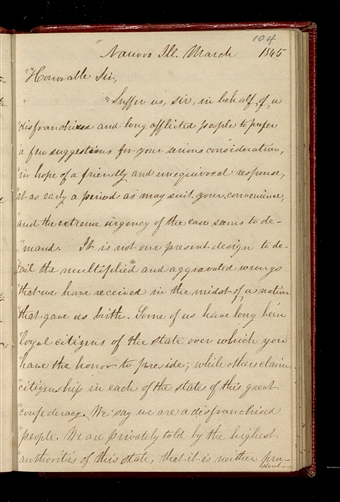 104
Nauvoo Ill. March 1845
"Honorable Sir,
" "Suffer us, sir, in behalf, of, a
disfranchised and long afflicted people to prefer
a few suggestions for your serious consideration,
in hope of a friendly and unequivocal response,
at as early a period as may suit your convenience,
and the extreme urgency of the case seems to de-
"mand. It is not our present design to de-
tail the multiplied and aggravated wrongs
that we have received in the midst of a nation
that gave us birth. Some of us have long been
loyal citizens of the state over which you
have the honor to preside; while others claim
citizenship in each of the states of this great
confederacy. We say we are a disfranchised
people. We are privately told by the highest
authorities of this state, that it is neither pru-
dent